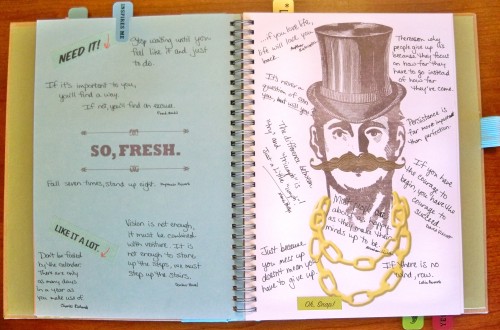 INSPIRES ME
NEED IT!
Stop waiting until you
feel like it and just
to do.
If it's important to you,
you'll find a way.
If not, you'll find an excuse.
SO, FRESH.
Fall seven times, stand up eight.
LIKE IT A LOT
Don't be fooled
by the calendar.
There are only
as many days
in a year as
you make use of.
Charles Richards
Vision is not enough,
it must be combined
with venture. It is
not enough to stare
up the steps, we must
step up the stairs.
...if you love life,
life will love you
back.
It's never a
question of can
you, and will you
The difference between
"try" and "triumph" is
just a little "umph".
Just because
you mess up
doesn't mean you
have to give up.
The reason why
people give up is
because they focus
on how far they
have to go instead
of how far
they've come.
Persistence is
far more important
than perfection.
If you have
the courage to
begin, you have the
courage to
succeed.
about as happy
as they make their
minds up to be.
If there is no
wind, row.
Latin Proverb
Oh, Snap!
YE